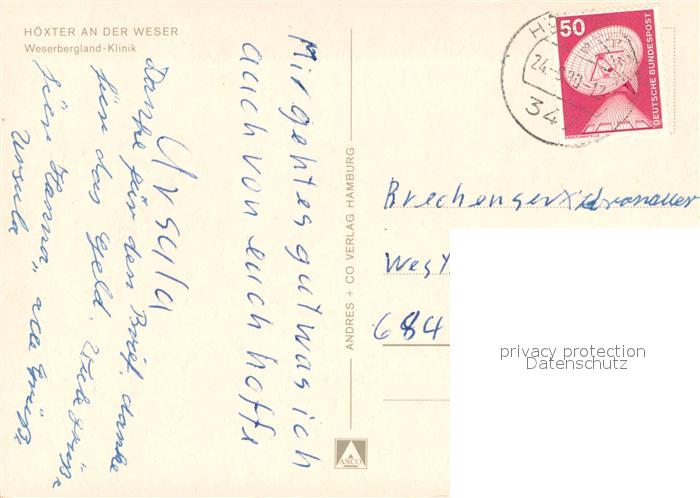 HÖXTER AN DER WESER
Weserbergland-Klinik
Mir geht es gut was ich
auch von euch hoffe
Ursula
Danke für den Brief, danke
für das Geld. Viele Grüße
für Hanna, alle Grüße
Ursula
ANDRES + CO VERLAG HAMBURG
ANCO
50
DEUTSCHE BUNDESPOST
34
Brechenser
West
684
privacy protection
Datenschutz